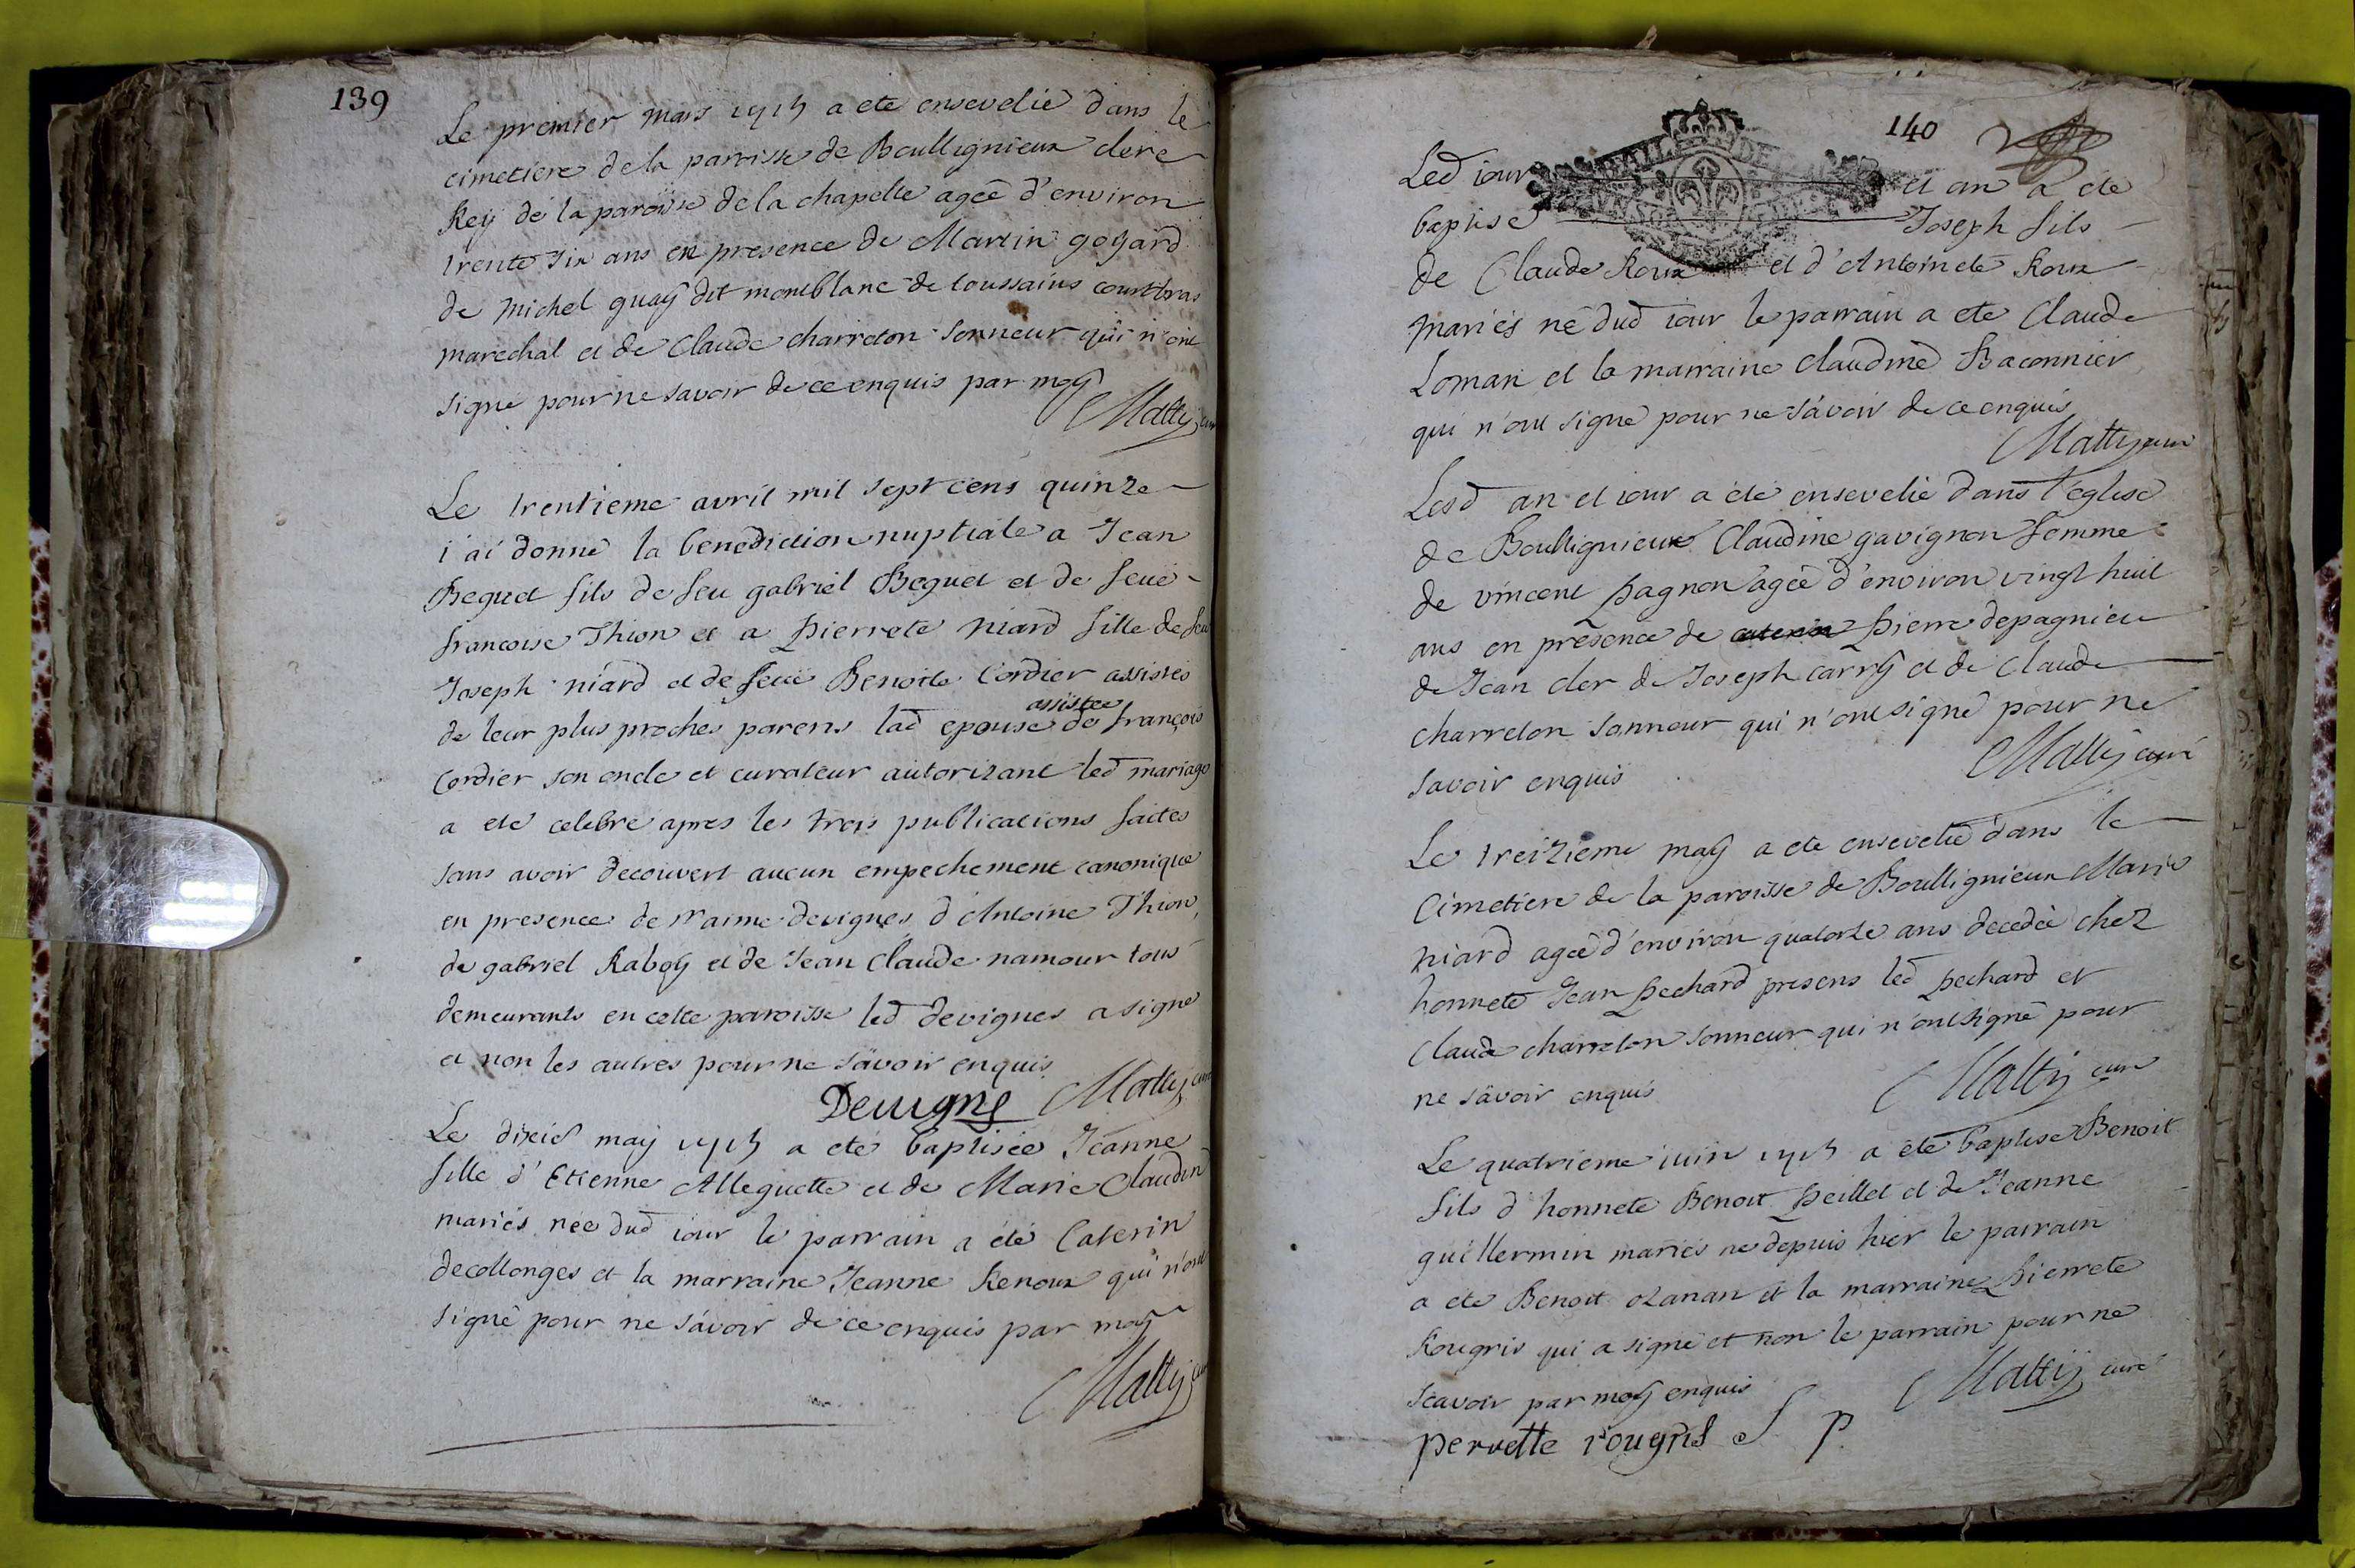 139
Le premier mars 1715 a ete ensevelie dans le
cimetiere de la parrisse de Boullignieux clere
Rey de la paroisse de la chapelle ageé d'environ
trente six ans en presence de Martin goyard
de Michel guay dit montblanc de toussains courtbras
marechal et de Claude charreton sonneur qui n'ont
signé pour ne savoir de ce enquis par moy
Mattij curé
Le trentieme avril mil sept cens quinze
i'ai donné la benediction nuptiale a Jean
Beguet fils de feu gabriel Beguet et de feuë
francoise Thion et a Pierrete niard fille de feu
Joseph niard et de feuë Benoite Cordier assistés
de leur plus proches parens lad epouse assistee de françois
Cordier son oncle et curateur autorizant led mariage
a eté celebré apres les trois publications faites
sans avoir decouvert aucun empechement canonique
en presence de sr aimé devignes, d'Antoine Thion,
de gabriel Raboy et de Jean Claude namour tous
demeurants en cette paroisse led devignes a signé
et non les autres pour ne sâvoir enquis
Devigne Mattij curé
Le dixie may 1715 a eté baptisée Jeanne
fille d'Etienne Alleguette et de Marie Claudin
mariés née dud iour le parrain a été Caterin
decollonges et la marraine Jeanne Renoux qui n'ont
signé pour ne sâvoir de ce enquis par moy
Mattij curé
140
Led iour et an a ete
baptisé Joseph fils
de Claude Roux et d'Antoinete Roux
mariés né dud iour le parrain a ete Claude
Loman et la marraine Claudine Baconnier
qui n'ont signé pour ne sâvoir de ce enquis
Mattij curé
Lesd an et iour a été ensevelie dans l'eglise
de Boullignieux Claudine gavignon femme
de vincent Pagnon agée d'environ vingt huit
ans en presence de Pierre depagnieu
de Jean cler de Joseph carry et de Claude
charreton sonneur qui n'ont signé pour ne
savoir enquis
Mattij curé
Le treizieme may a ete ensevelie dans le
Cimetiere de la paroisse de Boullignieux Marie
niard ageé d'environ quatorze ans decedée chez
honnete Jean Pechard presens led Pechard et
Claude charreton sonneur qui n'ont signé pour
ne sâvoir enquis
Mattij curé
Le quatrieme iuin 1715 a été baptisé Benoit
fils d'honnete Benoit Peillet et de Jeanne
guillermin mariés né depuis hier le parrain
a ete Benoit ozanan et la marraine Pierrete
Rougris qui a signé et non le parrain pour ne
scavoir par moy enquis
Mattij curé
pervette rougris S p